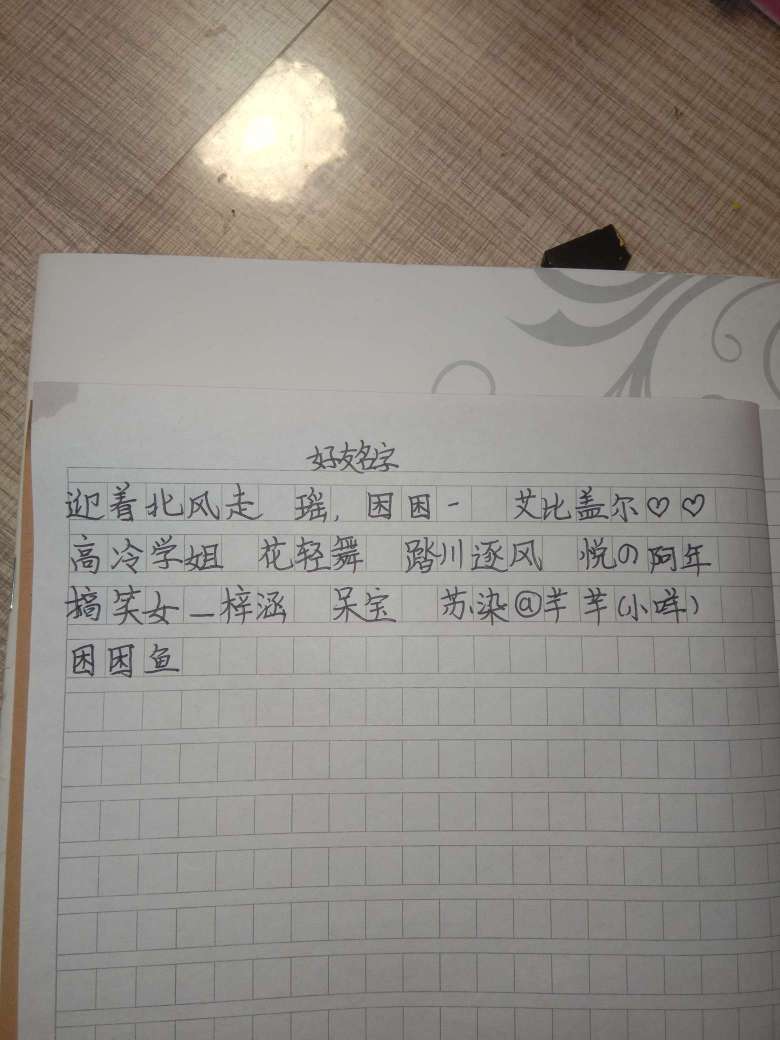 好友名字
迎着北风走 瑶, 困困- 艾比盖尔♡♡
高冷学姐 花轻舞 踏川逐风 悦の阿年
搞笑女_梓涵 呆宝 苏染@芊芊(小咩)
困困鱼